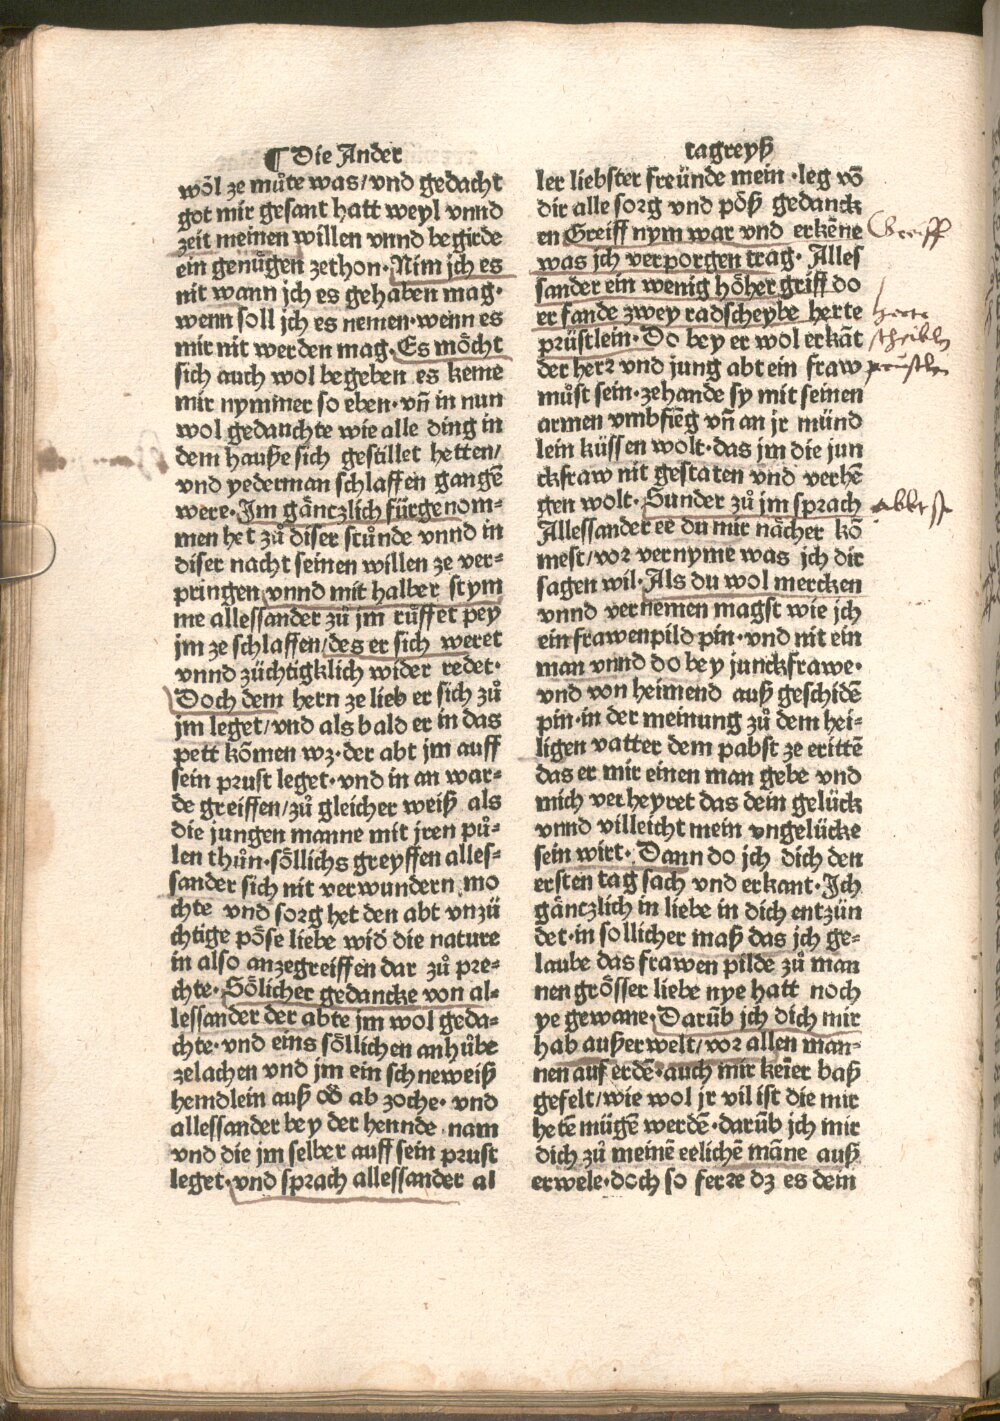 ¶ Die Ander
wöl ze můte was/vnd gedacht
got mir gesant hatt weyl vnnd
zeit meinen willen vnnd begirde
ein genůgen zethon·Nim jch es
nit wann jch es gehaben mag·
wenn soll jch es nemen·wenn es
mir nit werden mag·Es möcht
sich auch wol begeben es keme
mir nymmer so eben·vñ in nun
wol gedauchte wie alle ding in
dem hauße sich gestillet hetten/
vnd yederman schlaffen gangē
were·Im gäntzlich fürgenom-
men het zů diser stůnde vnnd in
diser nacht seinen willen ze ver-
pringen vnnd mit halber stym
me allessander zů jm růffet pey
jm ze schlaffen/des er sich weret
vnnd züchtigklich wider redet·
Doch dem hern ze lieb er sich zů
jm leget/vnd als bald er in das
pett kōmen wz·der abt jm auff
sein prust leget·vnd in an war-
de greiffen/zů gleicher weiß als
die jungen manne mit jren pů-
len thůn·söllichs greyffen alles-
sander sich nit verwundern mo
chte vnd sorg het den abt vnzü
chtige pöse liebe wid die nature
in also anzegreiffen dar zů pre-
chte·Sölicher gedancke von al-
lessander der abte jm wol geda-
chte·vnd eins söllichen anhůbe
zelachen vnd jm ein schneweiß
hemdlein auß od ab zoche·vnd
allessander bey der hennde nam
vnd die jm selber auff sein prust
leget·vnd sprach allessander al
tagreyß
ler liebster freünde mein·leg vō
dir alle sorg vnd pöß gedanck
en Greiff nym war vnd erkēne
was jch verporgen trag·Alles
sander ein wenig höher griff do
er fande zwey radscheybe herte
prüstlein·Do bey er wol erkāt
der herr vnd jung abt ein fraw
můst sein·zehande sy mit seinen
armen vmbfiēg vñ an jr münd
lein küssen wolt·das jm die jun
ckfraw nit gestaten vnd verhē
gen wolt·Sunder zů jm sprach
Allessander ee du mir nächer kō
mest/vor vernyme was jch dir
sagen wil·Als du wol mercken
vnnd vernemen magst wie jch
ein frawenpild pin·vnd nit ein
man vnnd do bey junckfrawe·
vnd von heimend auß geschidē
pin·in der meinung zů dem hei-
ligen vatter dem pabst ze erittē
das er mir einen man gebe vnd
mich verheyret das dein gelück
vnnd villeicht mein vngelücke
sein wirt·Dann do jch dich den
ersten tag sach vnd erkant·Ich
gäntzlich in liebe in dich entzün
det·in sollicher maß das jch ge-
laube das frawen pilde zů man
nen grösser liebe nye hatt noch
ye gewane·Darūb jch dich mir
hab außerwelt/vor allen man-
nen auf erdē·auch mir keīer baß
gefelt/wie wol jr vil ist die mir
hetē mügē werdē·darūb jch mir
dich zů meinē eelichē māne auß
erwele·doch so ferre dz es dein
Greiff
herte
scheible
prüstlen